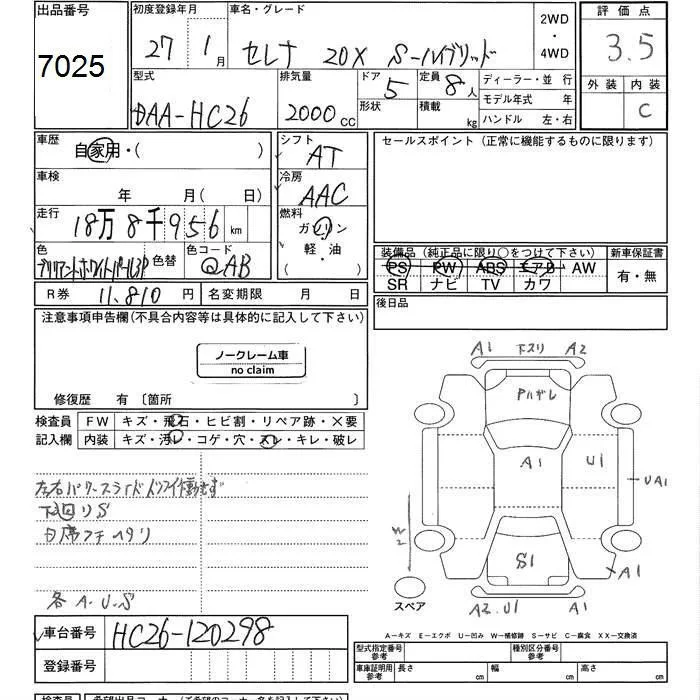 出品番号 初度登録年月 車名・グレード 2WD・4WD 評価点
7025 27年 1月 セレナ 20X S-ハイブリッド 3.5
型式 排気量 ドア 定員 ディーラー・並行 外装 内装
DAA-HC26 2000cc 5 8人 モデル年式 年 C
形状 積載 kg ハンドル 左・右
車歴 自家用・( ) シフト AT セールスポイント(正常に機能するものに限ります)
車検 年 月( 日) 冷房 AAC
走行 18万8千956km 燃料 ガソリン
軽・油
( )
色 ブリリアントホワイトパール3P 色替 色カラーコード QAB
装備品(純正品に限り○をつけて下さい) 新車保証書
PS PW ABS エアB AW 有・無
SR ナビ TV カワ
R券 11,810円 名変期限 月 日 後日品
注意事項申告欄(不具合内容等は具体的に記入して下さい)
ノークレーム車
no claim
修復歴 有〔箇所 〕
検査員 FW キズ・飛石・ヒビ割・リペア跡・×要
記入欄 内装 キズ・汚レ・コゲ・穴・スレ・キレ・破レ
左右パワースライドドア作動せず
下廻りS
各A.U.S
A1 下スリ A2
Pハガレ
A1 U1 UA1
S1 A1
スペア A2.U1 A1
A-キズ E-エクボ U-凹み W-補修跡 S-サビ C-腐食 XX-交換済
車台番号 HC26-120298
登録番号
型式指定番号 参考 種別区分番号 参考
車庫証明用 参考 長さ cm 幅 cm 高さ cm